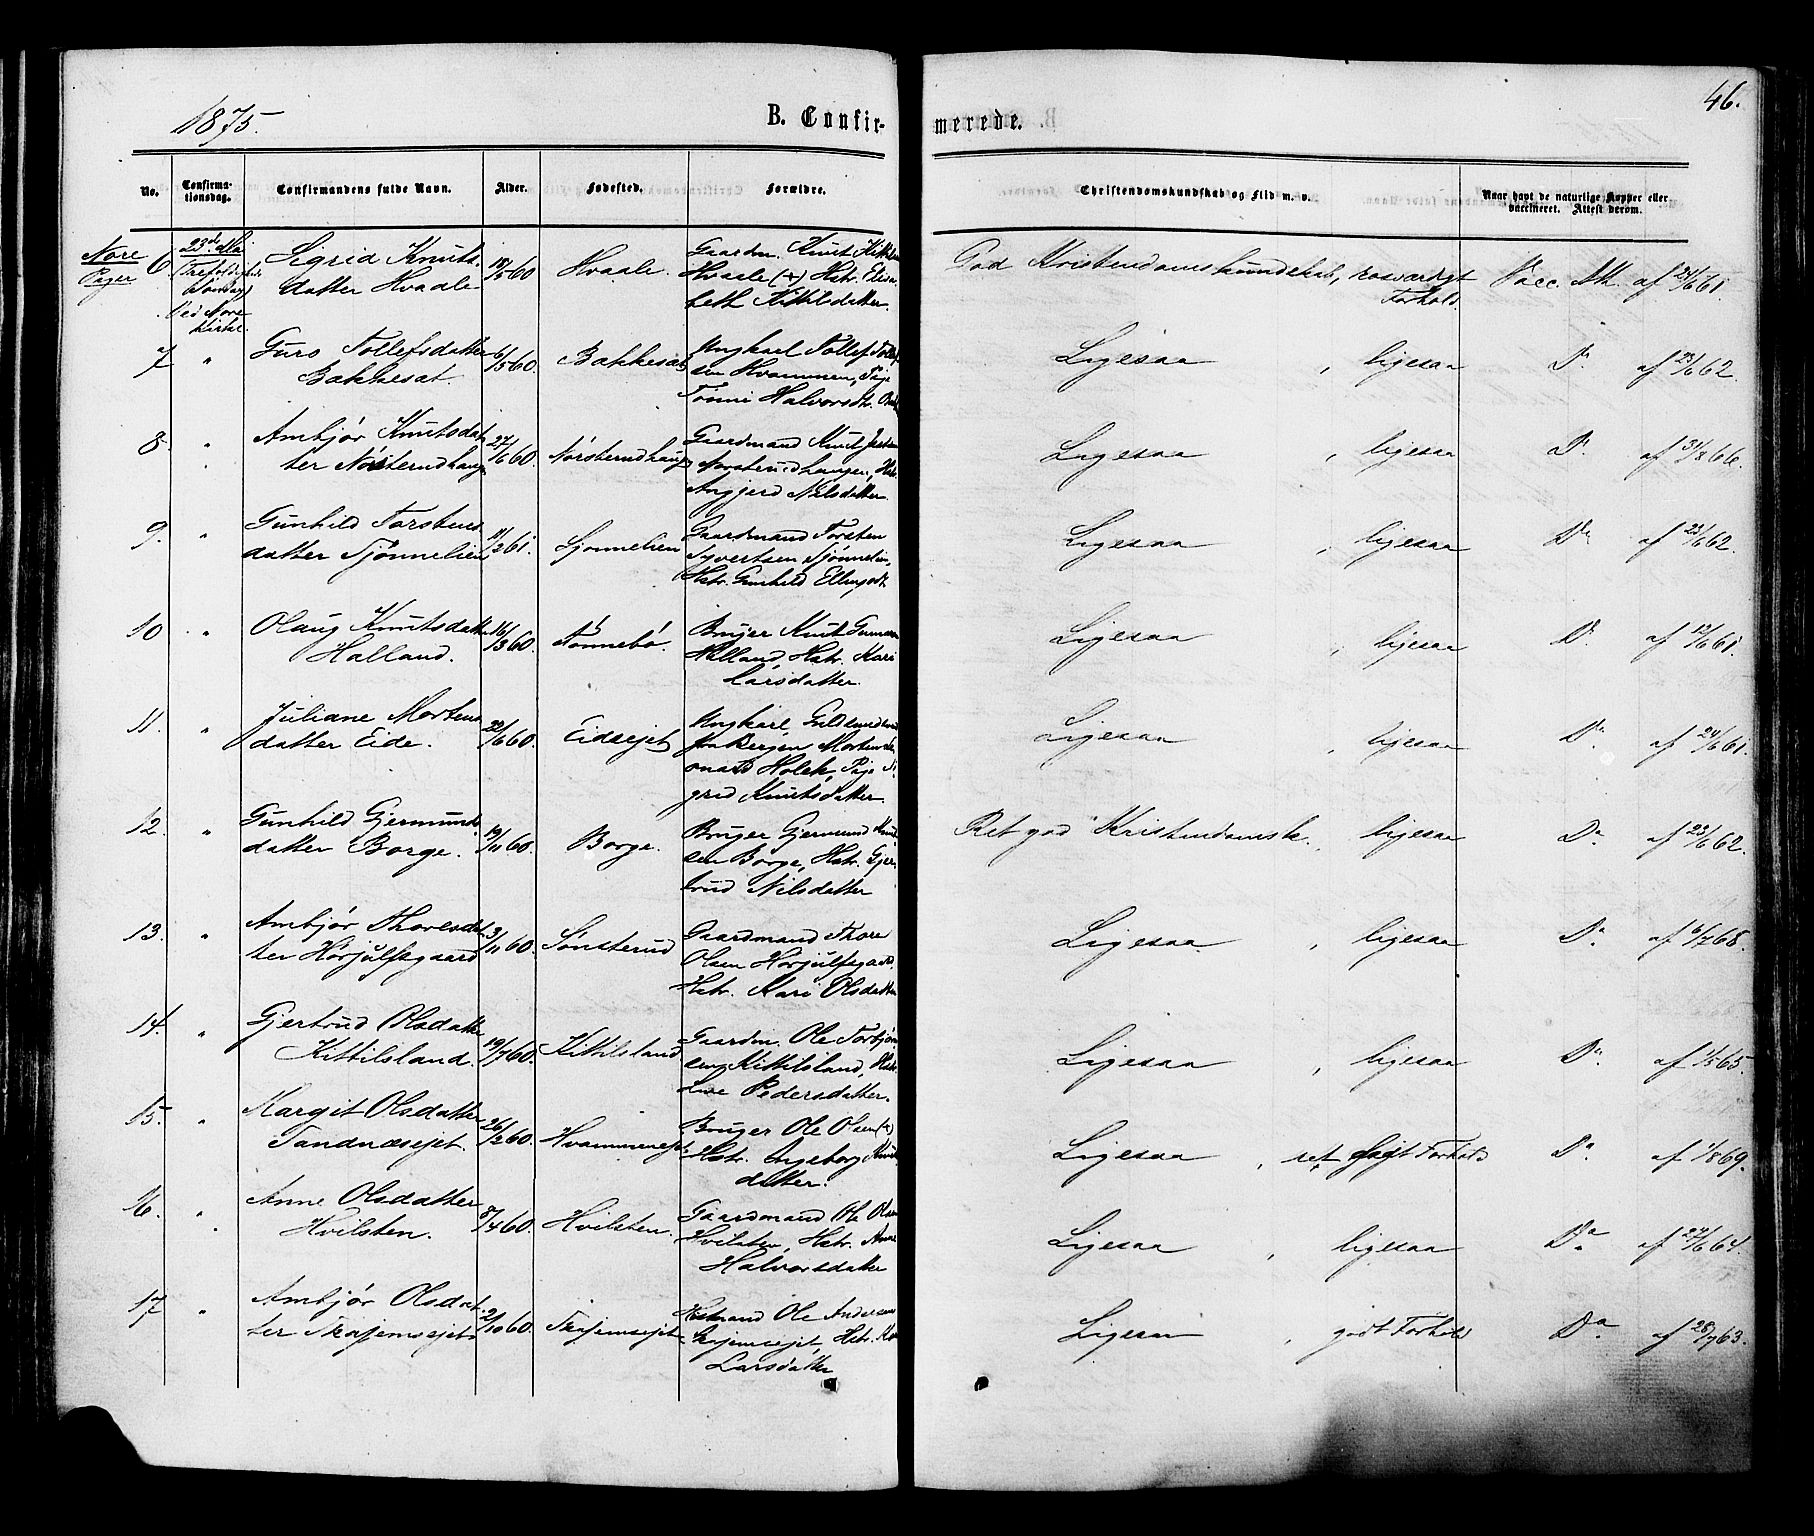 1875.
B. Confir-
merede.
46.
No.
Confirma-
tionsdag.
Confirmandens fulde Navn.
Alder.
Fødested.
Forældre.
Christendomskundskab og Flid m. v.
Naar havt de naturlige Kopper eller
vaccineret. Attest derom.
Nore
Piger
6.
23de Mai
Trefoldigheds
Søndag
Ved Nore
Kirke.
Sigrid Knuts-
datter Hvaale
18/5 60
Hvaale.
Gaardm. Knut Kittilsen
Hvaale (+) Hstr. Elisa-
beth Kittilsdatter.
God Kristendomskundskab, rosværdigt
Forhold.
Vacc. Att. af 24/6 61.
7 "
Guro Tollefsdatter
Bakkesat.
6/5 60.
Bakkesat
Ungkarl Tollef Tollef-
sen Hvammen, Pige
Tonni Halvorsdtr.
Ligesaa, ligesaa Do af 23/6 62.
8. "
Ambjør Knutsdat-
ter Nørsterudhaug
27/6 60.
Nørsterudhaug
Gaardmand Knut
Nørsterudhaugen, Hstr.
Angjerd Nilsdatter
Ligesaa, ligesaa Do af 31/8 66.
9. "
Gunhild Torstens-
datter Tjønnelien
11/2 61.
Tjønnelien
Gaardmand Torsten
Syvertsen Tjønnelien,
Hstr. Gunhild Ellingsdt.
Ligesaa, ligesaa Do af 23/6 62.
10 "
Olaug Knutsdatter
Halland.
16/3 60.
Tønnebø.
Bruger Knut Gunnarsen
Halland, Hstr. Kari
Larsdatter.
Ligesaa, ligesaa Do af 12/6 61.
11. "
Juliane Mortens-
datter Eide.
22/6 60.
Eidsejet
Ungkarl,
fra Bergen Morten
Holck, Pige Si-
grid Knutsdatter.
Ligesaa, ligesaa Do af 24/6 61.
12. "
Gunhild Gjermunds-
datter Borge.
19/11 60.
Borge.
Bruger Gjermund Knud-
sen Borge, Hstr. Gjer-
trud Nilsdatter
Ret god Kristendomsk., ligesaa Do af 23/6 62.
13. "
Ambjør Thoresdat-
ter Hørjulfsgaard
3/11 60.
Sønsterud
Gaardmand Thore
Olsen Hørjulfsgaard,
Hstr. Kari Olsdatter
Ligesaa, ligesaa Do af 6/7 68.
14. "
Gjertrud Olsdatter
Kittilsland.
19/7 60.
Kittilsland
Gaardm. Ole Torbjørn-
sen Kittilsland, Hstr.
Live Pedersdatter.
Ligesaa, ligesaa Do af 1/5 65.
15. "
Margit Olsdatter
Sandnæsejet.
26/2 60.
Hvammenejet
Bruger Ole Olsen (+)
Hstr. Ingeborg Knuds-
datter.
Ligesaa, ret godt Forhold Do af 1/8 69.
16. "
Anne Olsdatter
Hvilsten.
8/4 60.
Hvilsten.
Gaardmand Ole Olsen
Hvilsten, Hstr. Anne
Halvorsdatter
Ligesaa, ligesaa Do af 24/6 64.
17 "
Ambjør Olsdat-
ter Trøjemsejet
2/10 60.
Trøjemsejet.
Husmand Ole Andersen
Trøjemsejet, Hstr. Kari
Larsdatter
Ligesaa, godt Forhold Do af 28/7 63.